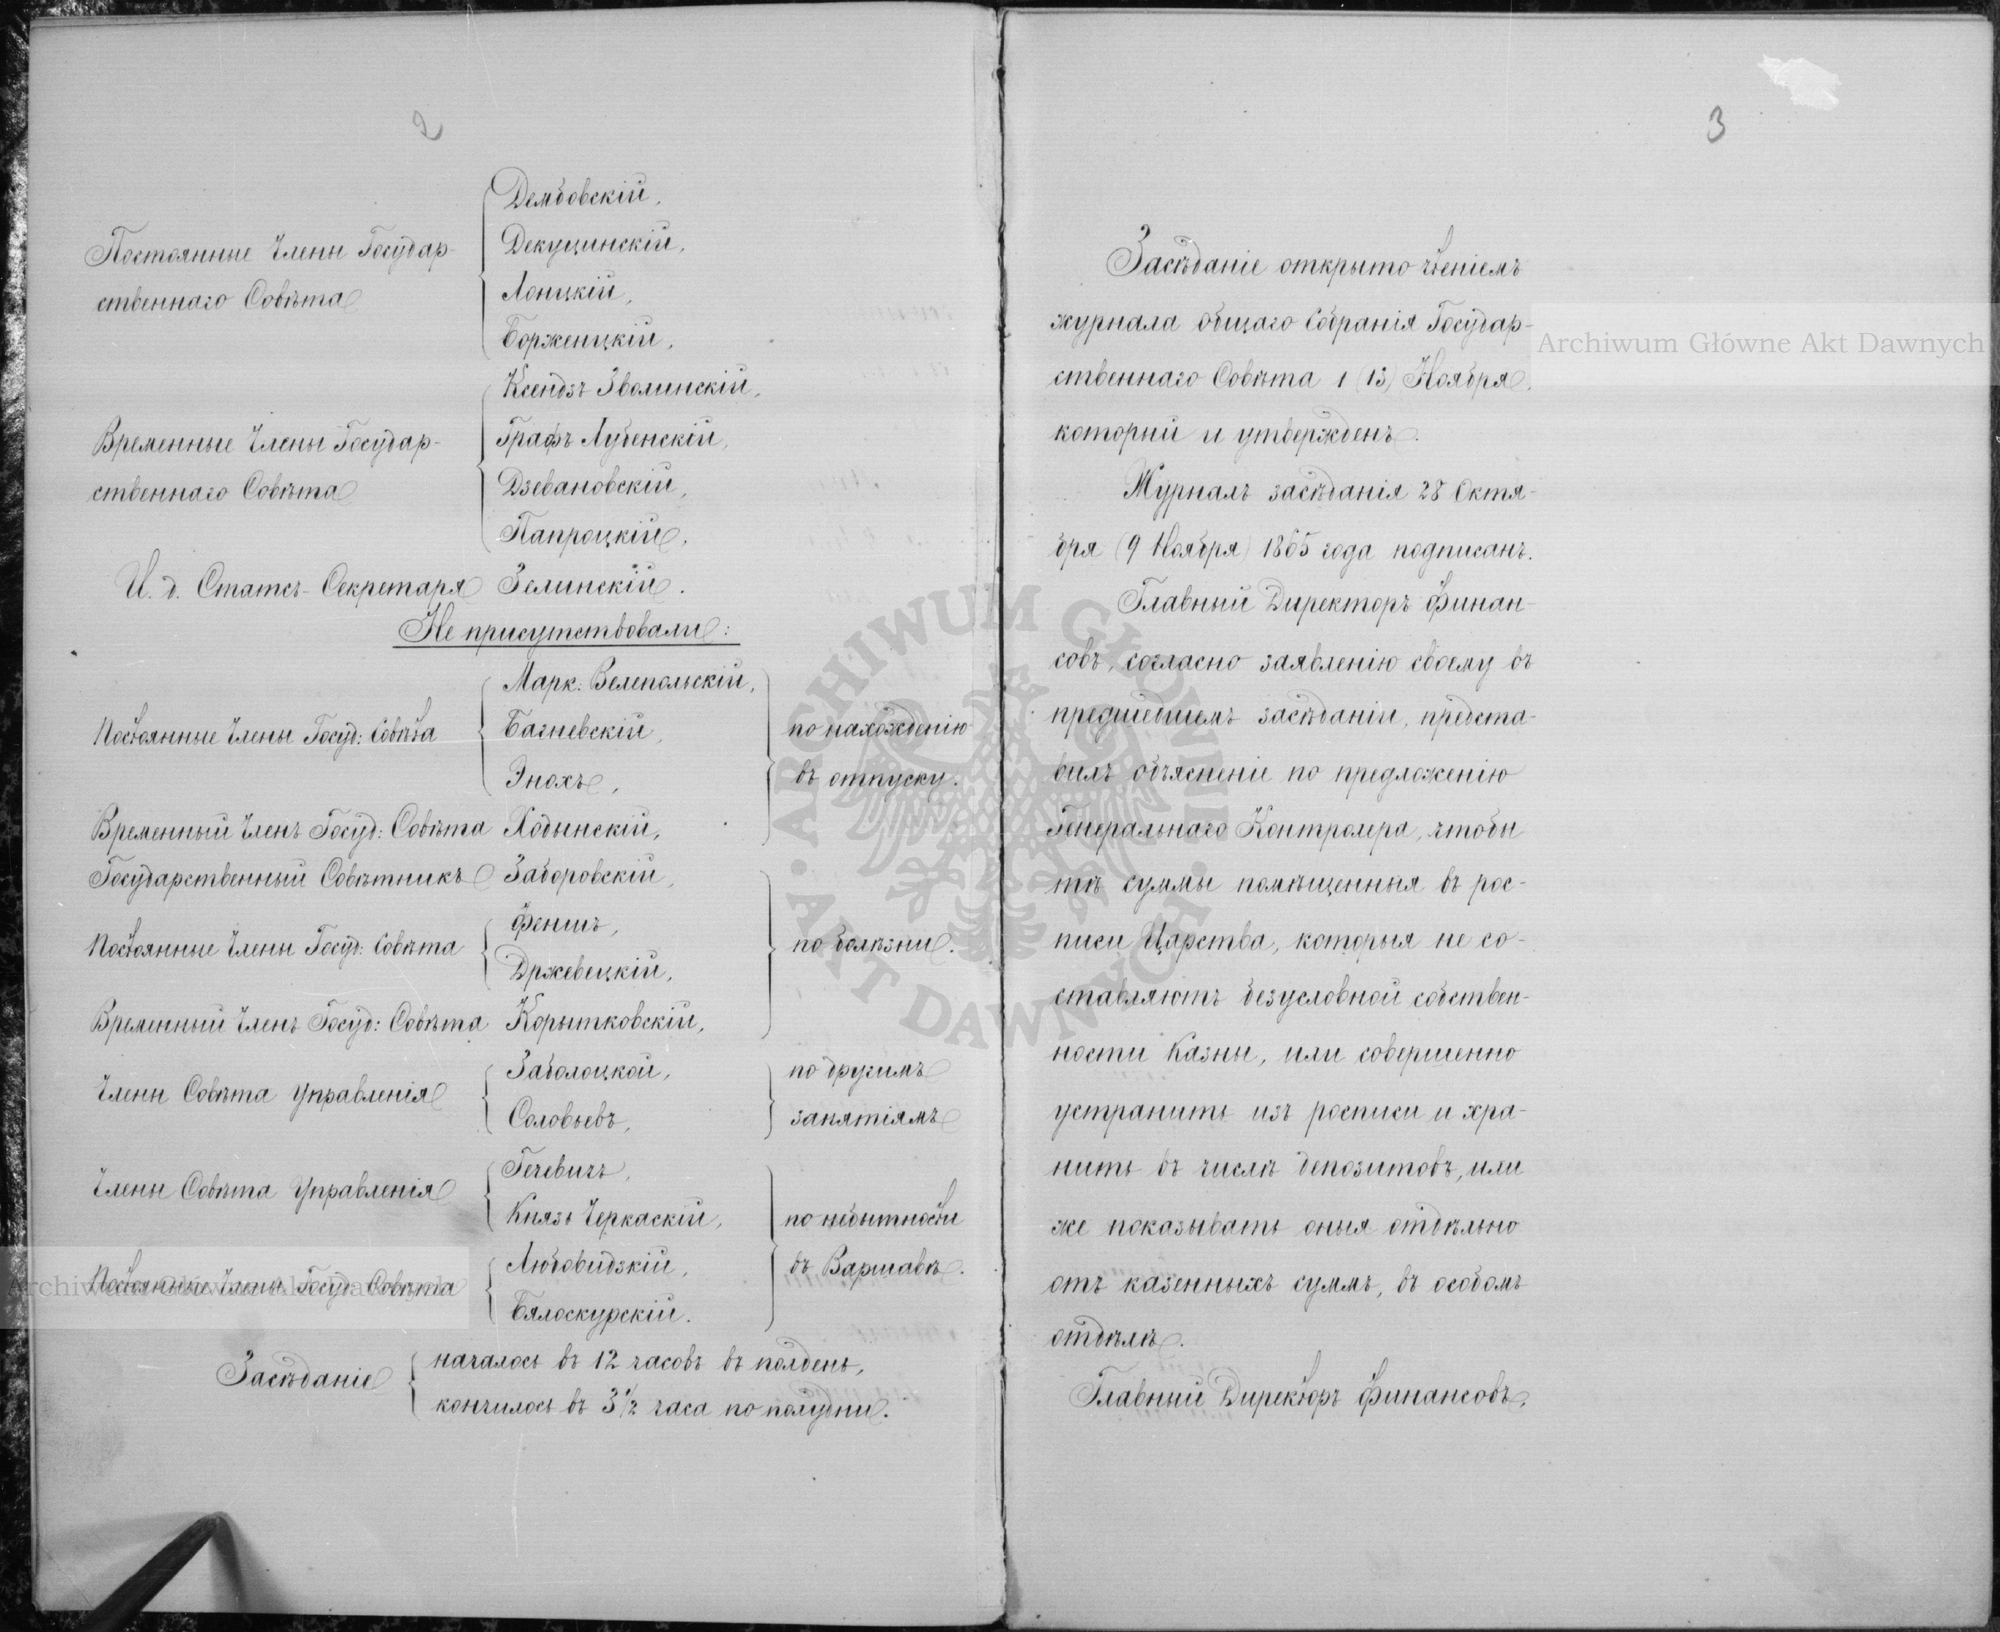 2
Постоянные Члены Государ-
ственнаго Совѣта
Дембовскій,
Декуцинскій,
Лоицкій,
Борженцкій,
Временные Члены Государ-
ственнаго Совѣта
Ксендзъ Зволинскій,
Графъ Лубенскій,
Дзевановскій,
Папроцкій,
И. д. Статсъ-Секретаря Зелинскій.
Не присутствовали:
Постоянные Члены Госуд: Совѣта
Марк: Велепольскій,
Багневскій,
Энохъ,
Временный Членъ Госуд: Совѣта Ходынскій,
по нахожденію
въ отпуску.
Государственный Совѣтникъ Заборовскій,
Постоянные Члены Госуд: Совѣта
Феншъ,
Држевецкій,
Временный Членъ Госуд: Совѣта Корытковскій,
по болѣзни.
Члены Совѣта Управленія
Заболоцкой,
Соловьевъ,
по другимъ
занятіямъ
Члены Совѣта Управленія
Гечевичъ,
Князь Черкаскій,
Постоянные Члены Госуд: Совѣта
Любовидзкій,
Бялоскурскій.
по небытности
въ Варшавѣ.
Засѣданіе
началось въ 12 часовъ въ полдень,
кончилось въ 3½ часа по полудни.
3
Засѣданіе открыто чтеніемъ
журнала общаго собранія Государ-
ственнаго Совѣта 1 (13) Ноября,
который и утвержденъ.
Журналъ засѣданія 28 Октя-
бря (9 Ноября) 1865 года подписанъ.
Главный Директоръ Финан-
совъ, согласно заявленію своему въ
предшедшемъ засѣданіи, предста-
вилъ объясненіе по предложенію
Генеральнаго Контролера, чтобы
тѣ суммы помѣщенныя въ рос-
писи Царства, которыя не со-
ставляютъ безусловной собствен-
ности Казны, или совершенно
устранить изъ росписи и хра-
нить въ числѣ депозитовъ, или
же показывать оныя отдѣльно
отъ казенныхъ суммъ, въ особомъ
отдѣлѣ.
Главный Директоръ Финансовъ,
Archiwum Główne Akt Dawnych
Archiwum Główne Akt Dawnych
ARCHIWUM GŁÓWNE · AKT DAWNYCH ·